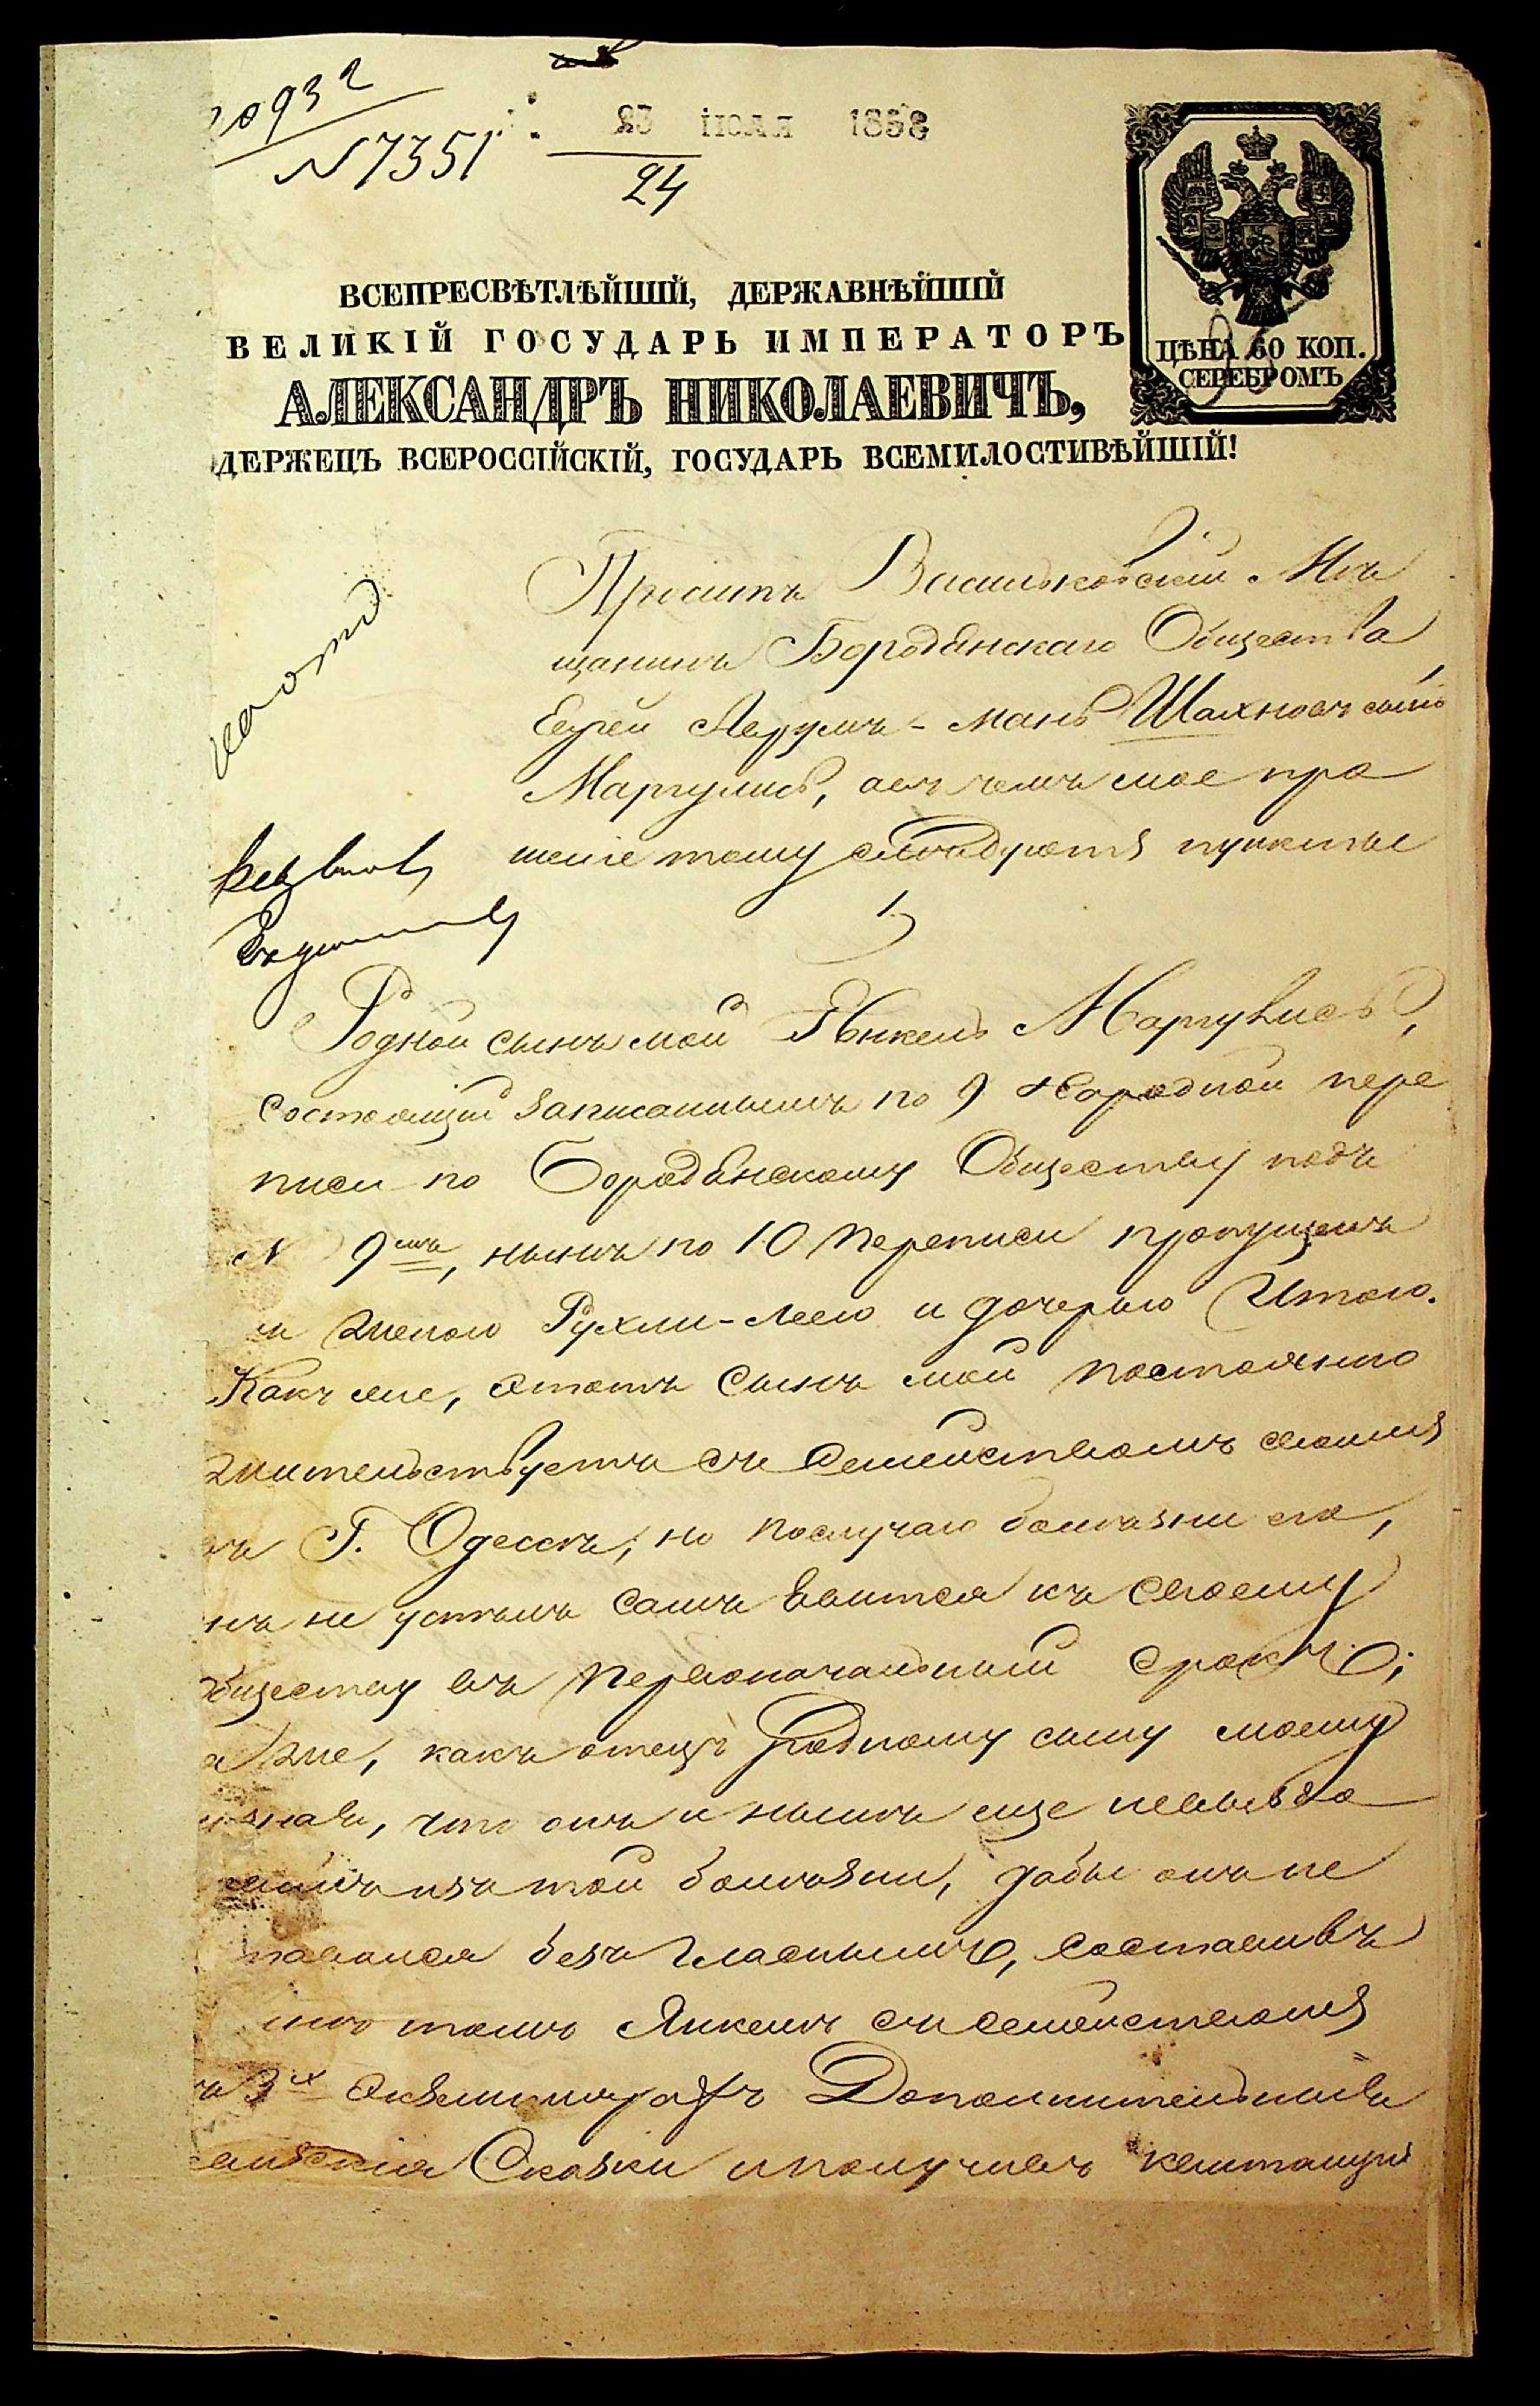 20932
N 7351
23 іюля 1858
24
ВСЕПРЕСВѢТЛѢЙШІЙ, ДЕРЖАВНѢЙШІЙ
ВЕЛИКІЙ ГОСУДАРЬ ИМПЕРАТОРЪ
АЛЕКСАНДРЪ НИКОЛАЕВИЧЪ,
ДЕРЖЕЦЪ ВСЕРОССІЙСКІЙ, ГОСУДАРЬ ВСЕМИЛОСТИВѢЙШІЙ!
ЦѢНА 60 КОП.
СЕРЕБРОМЪ
Проситъ Васильковскій Мѣ
щанинъ Бородянскаго Общества
Еврей Аврумъ-Манъ Шахновъ сынъ
Маргулисъ, а въ чемъ мое про
шеніе тому слѣдуютъ пункты
1
Родной сынъ мой Янкель Маргулисъ,
состоящій записаннымъ по 9 Народной пере
писи по Бородянскому Обществу подъ
N 9мъ, нынѣ по 10 переписи пропущенъ
женою Рухли-Леею и дочерью Итою.
Какъ же, этотъ сынъ мой постоянно
жительствуетъ съ семействомъ своимъ
въ Г. Одессѣ, но по случаю болѣзни его,
нъ не успѣлъ самъ явится къ своему
бществу въ первоначальный срокъ;
а же, какъ отецъ родному сыну моему
знавъ, что онъ и нынѣ еще невыздо
изъ той болѣзни, дабы онъ не
тавался безъ гласнымъ, составивъ
томъ Янкелѣ съ семействомъ
въ 3х экземплярахъ Дополнительныя
Сказки и получивъ квитанцію